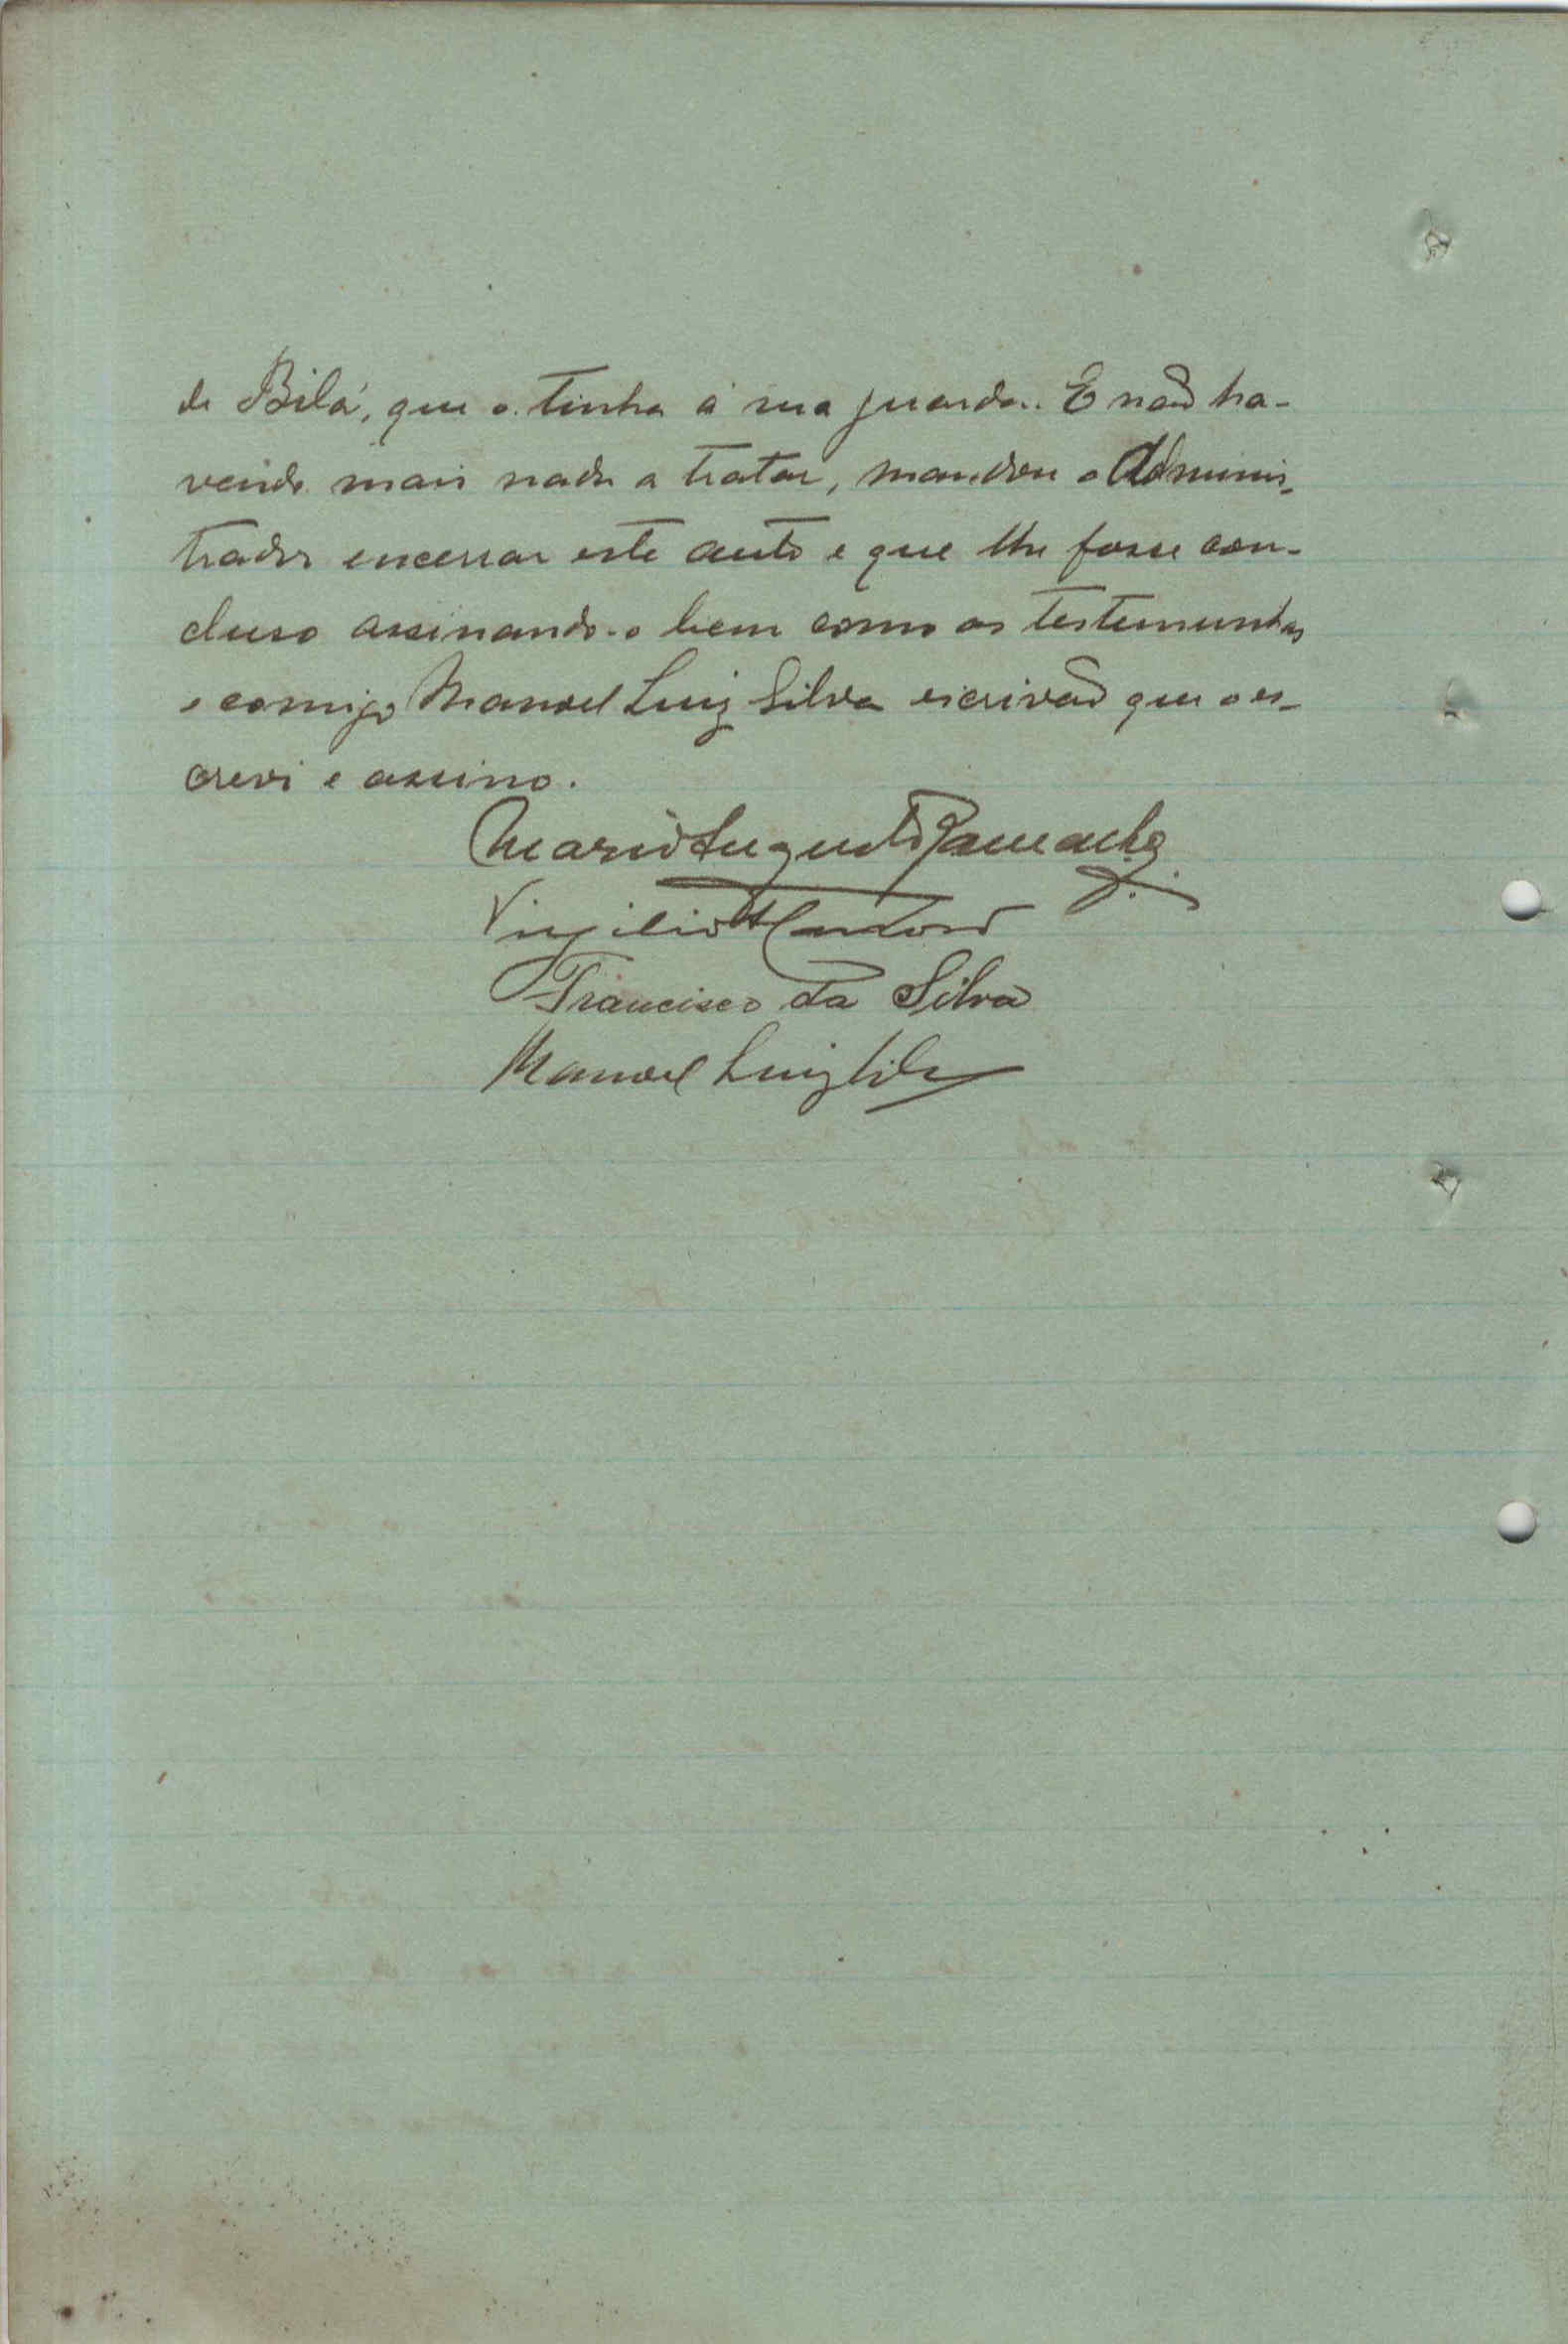 de Bilá, que o tinha á sua guarda. E não ha-
vendo mais nada a tratar, mandou o Adminis-
trador encerrar este auto e que lhe fosse con-
cluso assinando-o bem como as testemunhas
e comigo Manoel Luiz Silva escrivão que o es-
crevi e assino.
Mario Augusto
Virgilio
Francisco da Silva
Manoel Luiz Silva